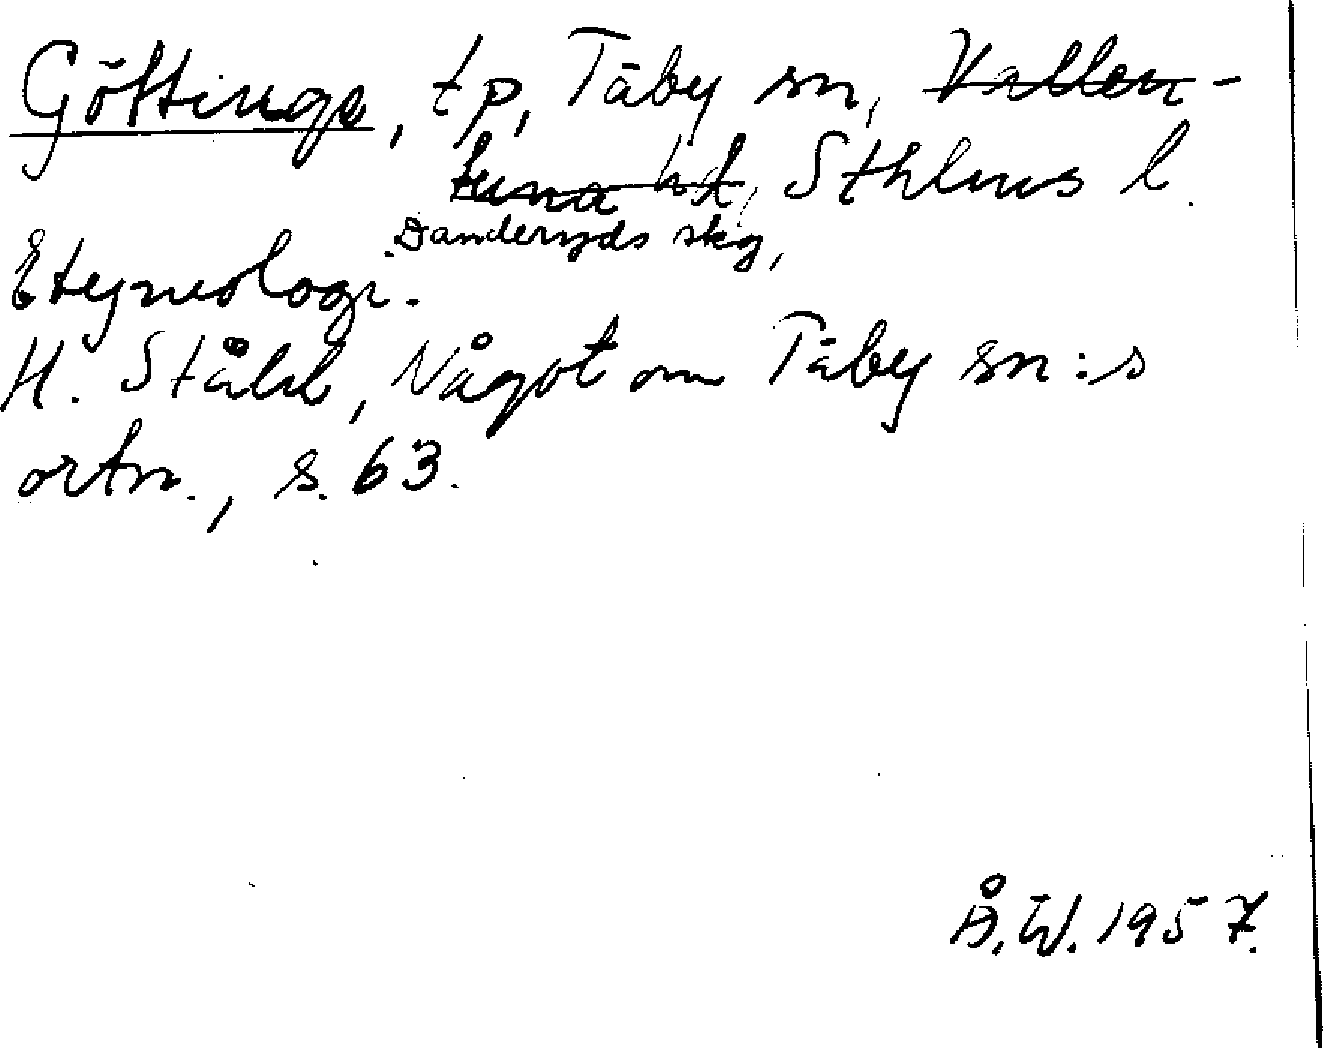 Göttinge, tp, Täby sn, Vallen-
tuna hd, Sthlms l.
Danderyds skg,
Etymologi.
H. Ståhl, Något om Täby sn:s
ortn., s. 63.
Å. W. 1957.